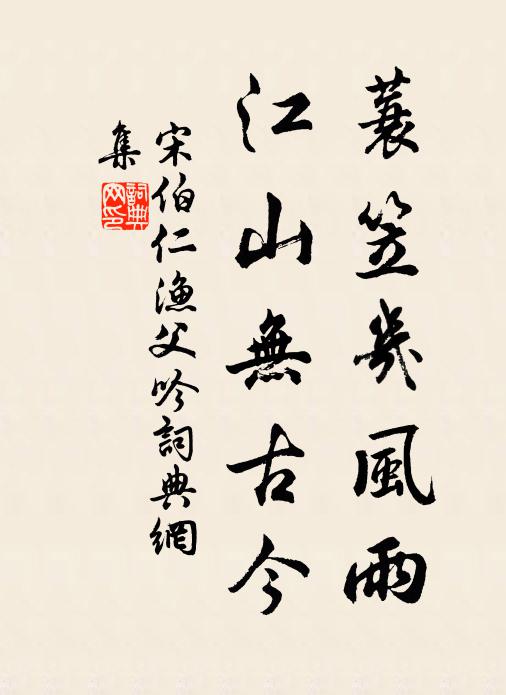 蓑笠幾風雨
江山無古今
宋伯仁漁父吟詞典網
集
詞典網印